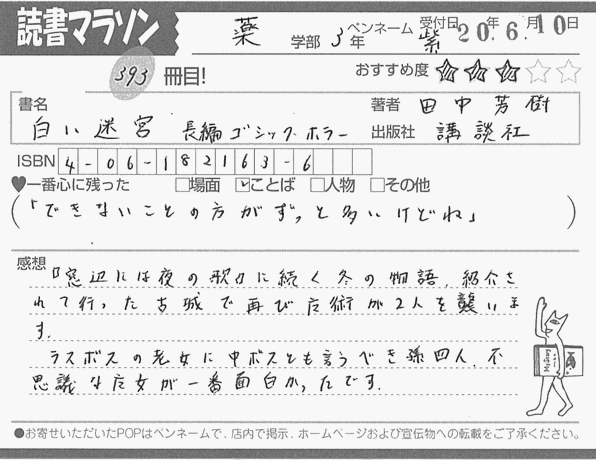 読書マラソン
薬 学部 3年 ペンネーム 紫 受付日 20年 6.月 10日
393 冊目! おすすめ度 ★★★☆☆
書名 著者 田中芳樹
白い迷宮 長編ゴシック・ホラー 出版社 講談社
ISBN 4-06-182163-6
♥一番心に残った □場面 ☑ことば □人物 □その他
(「できないことの方がずっと多いけどね」)
感想
『窓辺には夜の歌』に続く冬の物語.紹介さ
れて行った古城で再び応術が2人を襲いま
す.
ラスボスの老女に中ボスとも言うべき孫四人.不
思議な応女が一番面白かったです.
●お寄せいただいたPOPはペンネームで、店内で掲示、ホームページおよび宣伝物への転載をご了承ください。